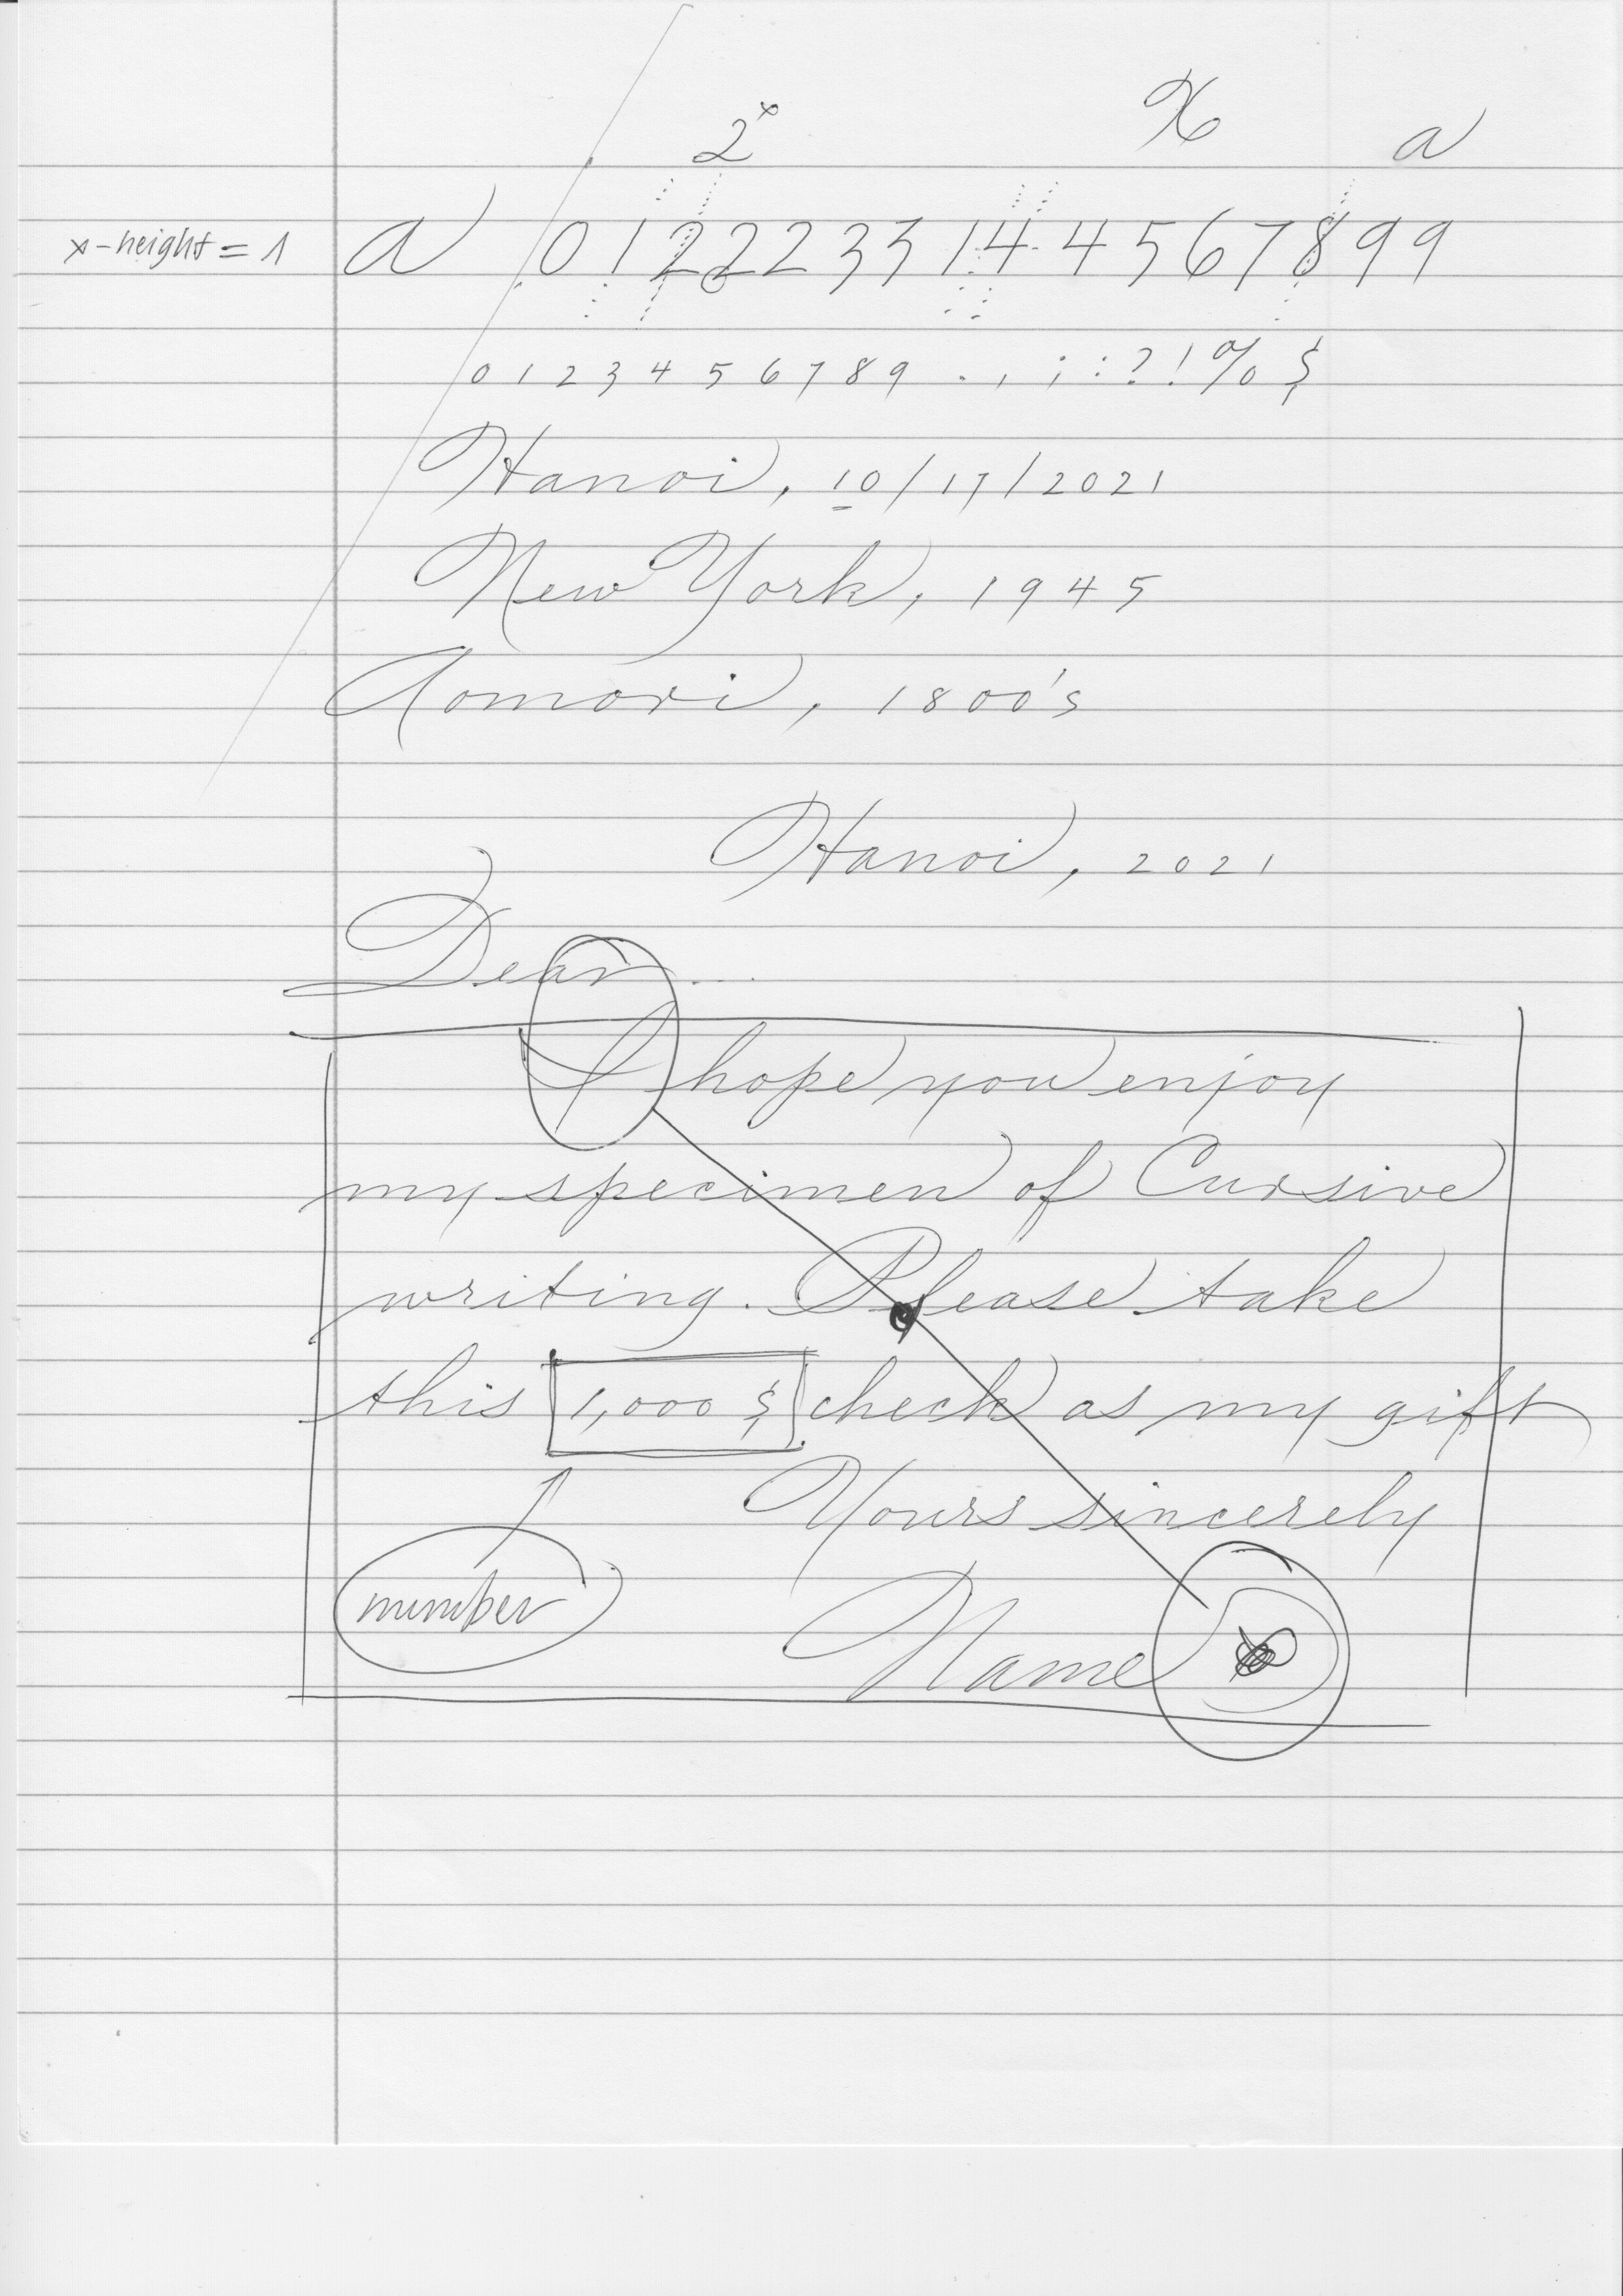 2x X a
x-height = 1 a 0 1 2 2 2 3 3 1 4 4 5 6 7 8 9 9
0 1 2 3 4 5 6 7 8 9 . , ; : ? ! % $
Hanoi, 10/17/2021
New York, 1945
Aomori, 1800's
Hanoi, 2021
Dear ...
I hope you enjoy
my specimen of Cursive
writing. Please take
this 1,000 $ check as my gift
Yours sincerely
Name